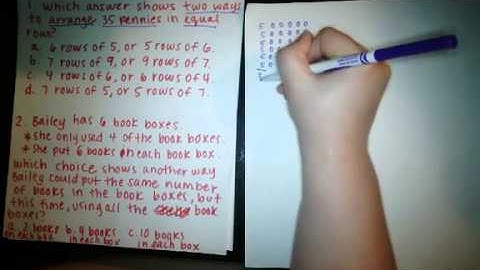 1. which answer shows two ways
to arrange 35 pennies in equal
rows?
a. 6 rows of 5, or 5 rows of 6.
b. 7 rows of 9, or 9 rows of 7.
c. 4 rows of 6, or 6 rows of 4.
d. 7 rows of 5, or 5 rows of 7.
2. Bailey has 6 book boxes.
* she only used 4 of the book boxes.
* she put 6 books in each book box.
which choice shows another way
Bailey could put the same number
of books in the book boxes, but
this time, using all the book
boxes?
a. 2 books b. 4 books c. 10 books
in each box in each box in each box